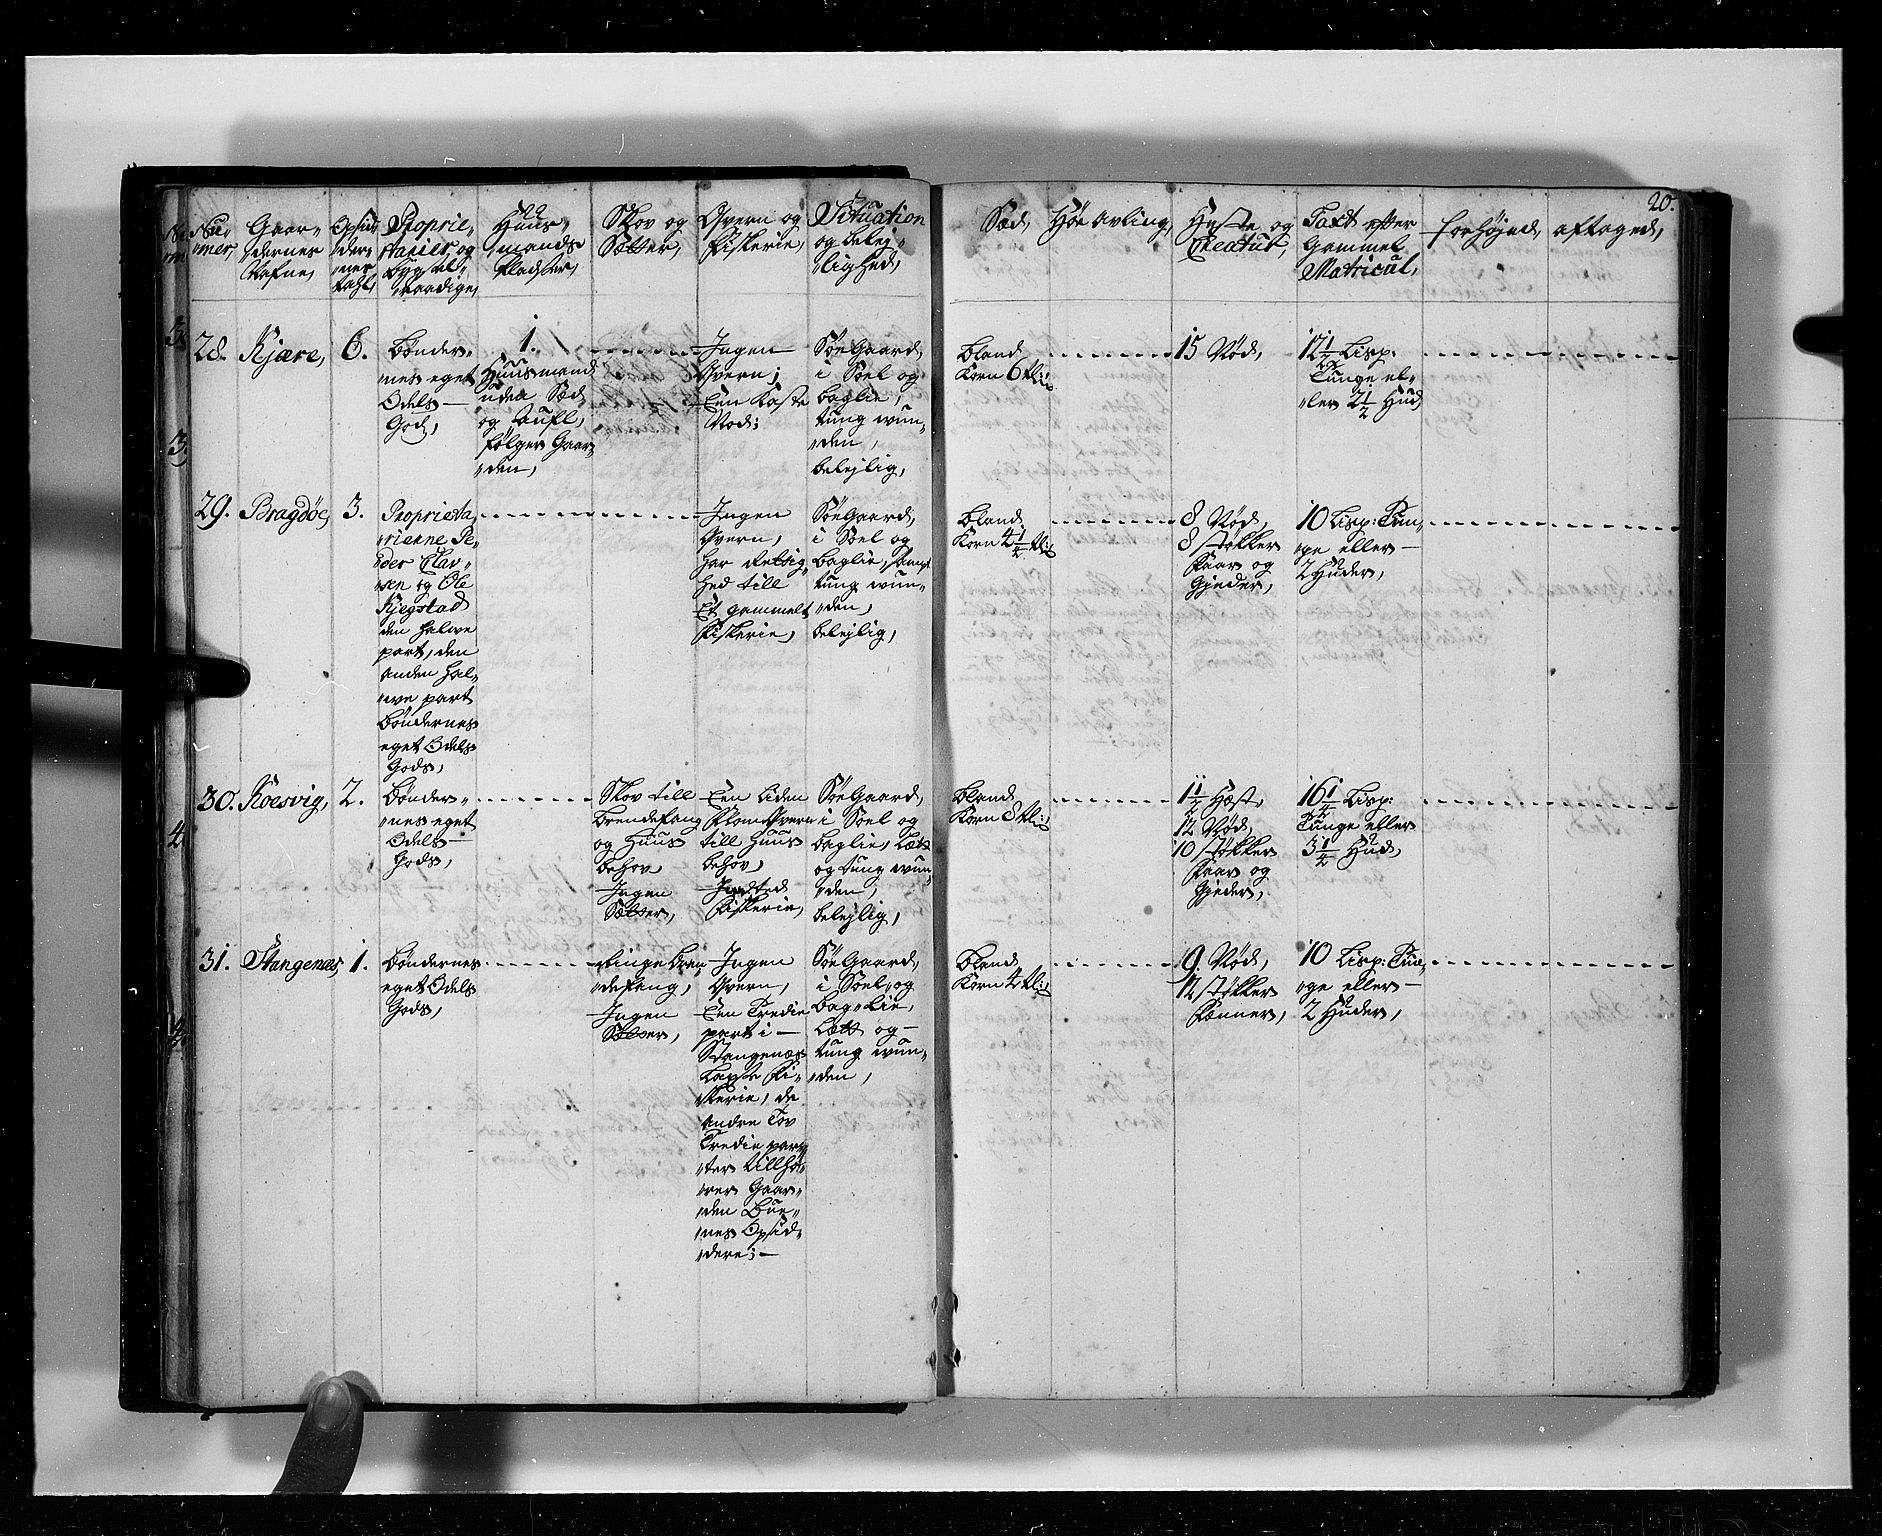 20.
Nu-
mer,
Gaar-
dernes
Nafne,
Opsid-
der-
nes
tahl,
Proprie-
tarier, og
bygsel-
raadige,
Huus-
mands
Pladser,
Skov og
Sætter,
Qvern og
Fiskerie,
Situation
og belej-
lighed,
Sæd,
Høe avling,
Heste og
Creatur,
Taxt efter
Gammel
Matricul,
forhøjed,
aftaged,
28.
Kjære,
6.
bønder-
nes eget
Odels
God,
1.
Huusmand
uden Sæd
og Qufl,
følger Gaar-
den,
Ingen
Qvern;
Een Kaste
Nod;
SøeGaard,
i Soel og
baglie,
tung wun-
den,
belejlig,
bland
Korn 6 tl:
15 Nød,
12 1/2 Lisp:
Tunge el-
ler 2 1/2 Hud,
29.
Bragdøe,
3.
Proprieta-
rierne Pe-
der Clav-
sen og Ole
Kjegstad
den halve
part, den
anden hal-
we part
bøndernes
eget Odels
Gods,
Ingen
Qvern,
har Retsig-
hed till
Et gammelt
Fiskerie,
SøeGaard,
i Soel og
baglie, samt
tung wun-
den,
belejlig,
bland
Korn 4 1/4 tl:
8 Nød,
8 støkker
Faar og
Gjeder,
10 Lisp: Tun-
ge eller
2 Huder,
30.
Koesvig,
2.
bønder-
nes eget
Odels
Gods,
Skov till
brendefang
og Huus
behov,
Ingen
Sætter,
Een liden
FlomQvern
till Huus
behov,
Intted
Fiskerie,
SøeGaard,
i Soel og
baglie, Lætt
og tung wun-
den,
belejlig,
bland
Korn 8 tl:
1 1/2 Hæst,
12 Nød,
10 støkker
Faar og
Gjeder,
16 1/4 Lisp:
Tunge eller
3 1/4 Hud,
31.
Stangenæs,
1.
bøndernes
eget Odels
Gods,
Ringe bren-
defang,
Ingen
Sætter,
Ingen
Qvern,
Een Tredie
part i
Stangenæs
Laxe Fi-
skerie, de
andre Tov
Tredie par-
ter tillhø-
rer Gaar-
den Bue-
nes Opsid-
dere;
SøeGaard,
i Soel og
bag Lie,
Lætt og
tung wun-
den,
bland
Korn 4 tl:
9 Nød,
14 støkker
Fænner,
10 Lisp: Tun-
ge eller
2 Huder,